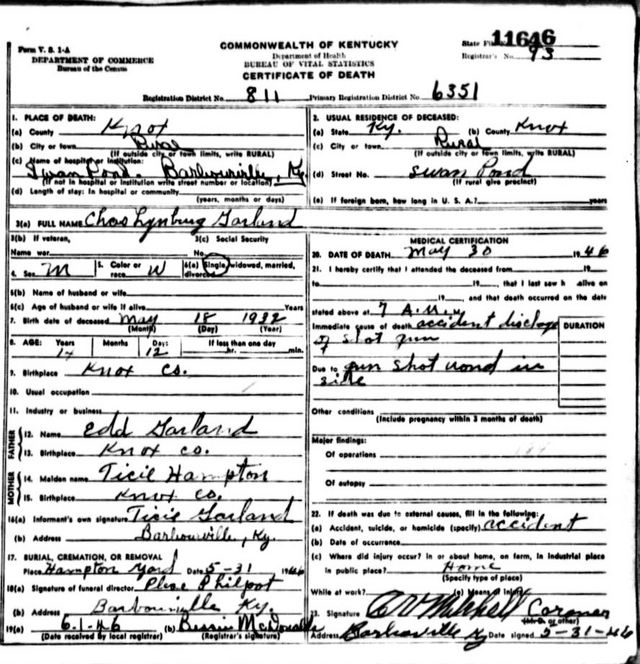 Form V. S. 1-A
DEPARTMENT OF COMMERCE
Bureau of the Census
COMMONWEALTH OF KENTUCKY
Department of Health
BUREAU OF VITAL STATISTICS
CERTIFICATE OF DEATH
State File 11646
Registrar's No. 93
Registration District No. 811 Primary Registration District No. 6351
1. PLACE OF DEATH:
(a) County Knox
(b) City or town Rural
(If outside city or town limits, write RURAL)
(c) Name of hospital or institution:
Swan Pond. Barbourville, Ky.
(If not in hospital or institution write street number or location)
(d) Length of stay: In hospital or community
(years, months or days)
2. USUAL RESIDENCE OF DECEASED:
(a) State Ky. (b) County Knox
(c) City or town Rural
(If outside city or town limits, write RURAL)
(d) Street No. Swan Pond
(If rural give precinct)
(e) If foreign born, how long in U. S. A.? years
3(a) FULL NAME Chas Lynburg Garland
3(b) If veteran,
Name war
3(c) Social Security
No.
4. Sex M 5. Color or race W 6(a) Single, widowed, married, divorced
6(b) Name of husband or wife
6(c) Age of husband or wife if alive Years
7. Birth date of deceased May 18 1932
(Month) (Day) (Year)
8. AGE: Years Months Days If less than one day
14 12 hr. min.
9. Birthplace Knox Co.
10. Usual occupation
11. Industry or business
FATHER
12. Name Edd Garland
13. Birthplace Knox Co.
MOTHER
14. Maiden name Ticie Hampton
15. Birthplace Knox Co.
16(a) Informant's own signature Ticie Garland
(b) Address Barbourville, Ky.
17. BURIAL, CREMATION, OR REMOVAL
Place Hampton Yard Date 5-31 1946
18(a) Signature of funeral director Philpot
(b) Address Barbourville Ky.
19(a) 6-1-46 (b) Bessie McDonald
(Date received by local registrar) (Registrar's signature)
MEDICAL CERTIFICATION
20. DATE OF DEATH May 30 1946
21. I hereby certify that I attended the deceased from 19
to 19, that I last saw h alive on
19, and that death occurred on the date
stated above at 7 A.M.
Immediate cause of death accident discharge
of shot gun
DURATION
Due to gun shot wond in
side
Other conditions
(Include pregnancy within 3 months of death)
Major findings:
Of operations
Of autopsy
22. If death was due to external causes, fill in the following:
(a) Accident, suicide, or homicide (specify) accident
(b) Date of occurrence
(c) Where did injury occur? In or about home, on farm, in industrial place
in public place? Home
(Specify type of place)
While at work? (e) Means of injury
23. Signature Mitchell Coroner
(M.D. or other)
Address Barbourville Ky Date signed 5-31-46